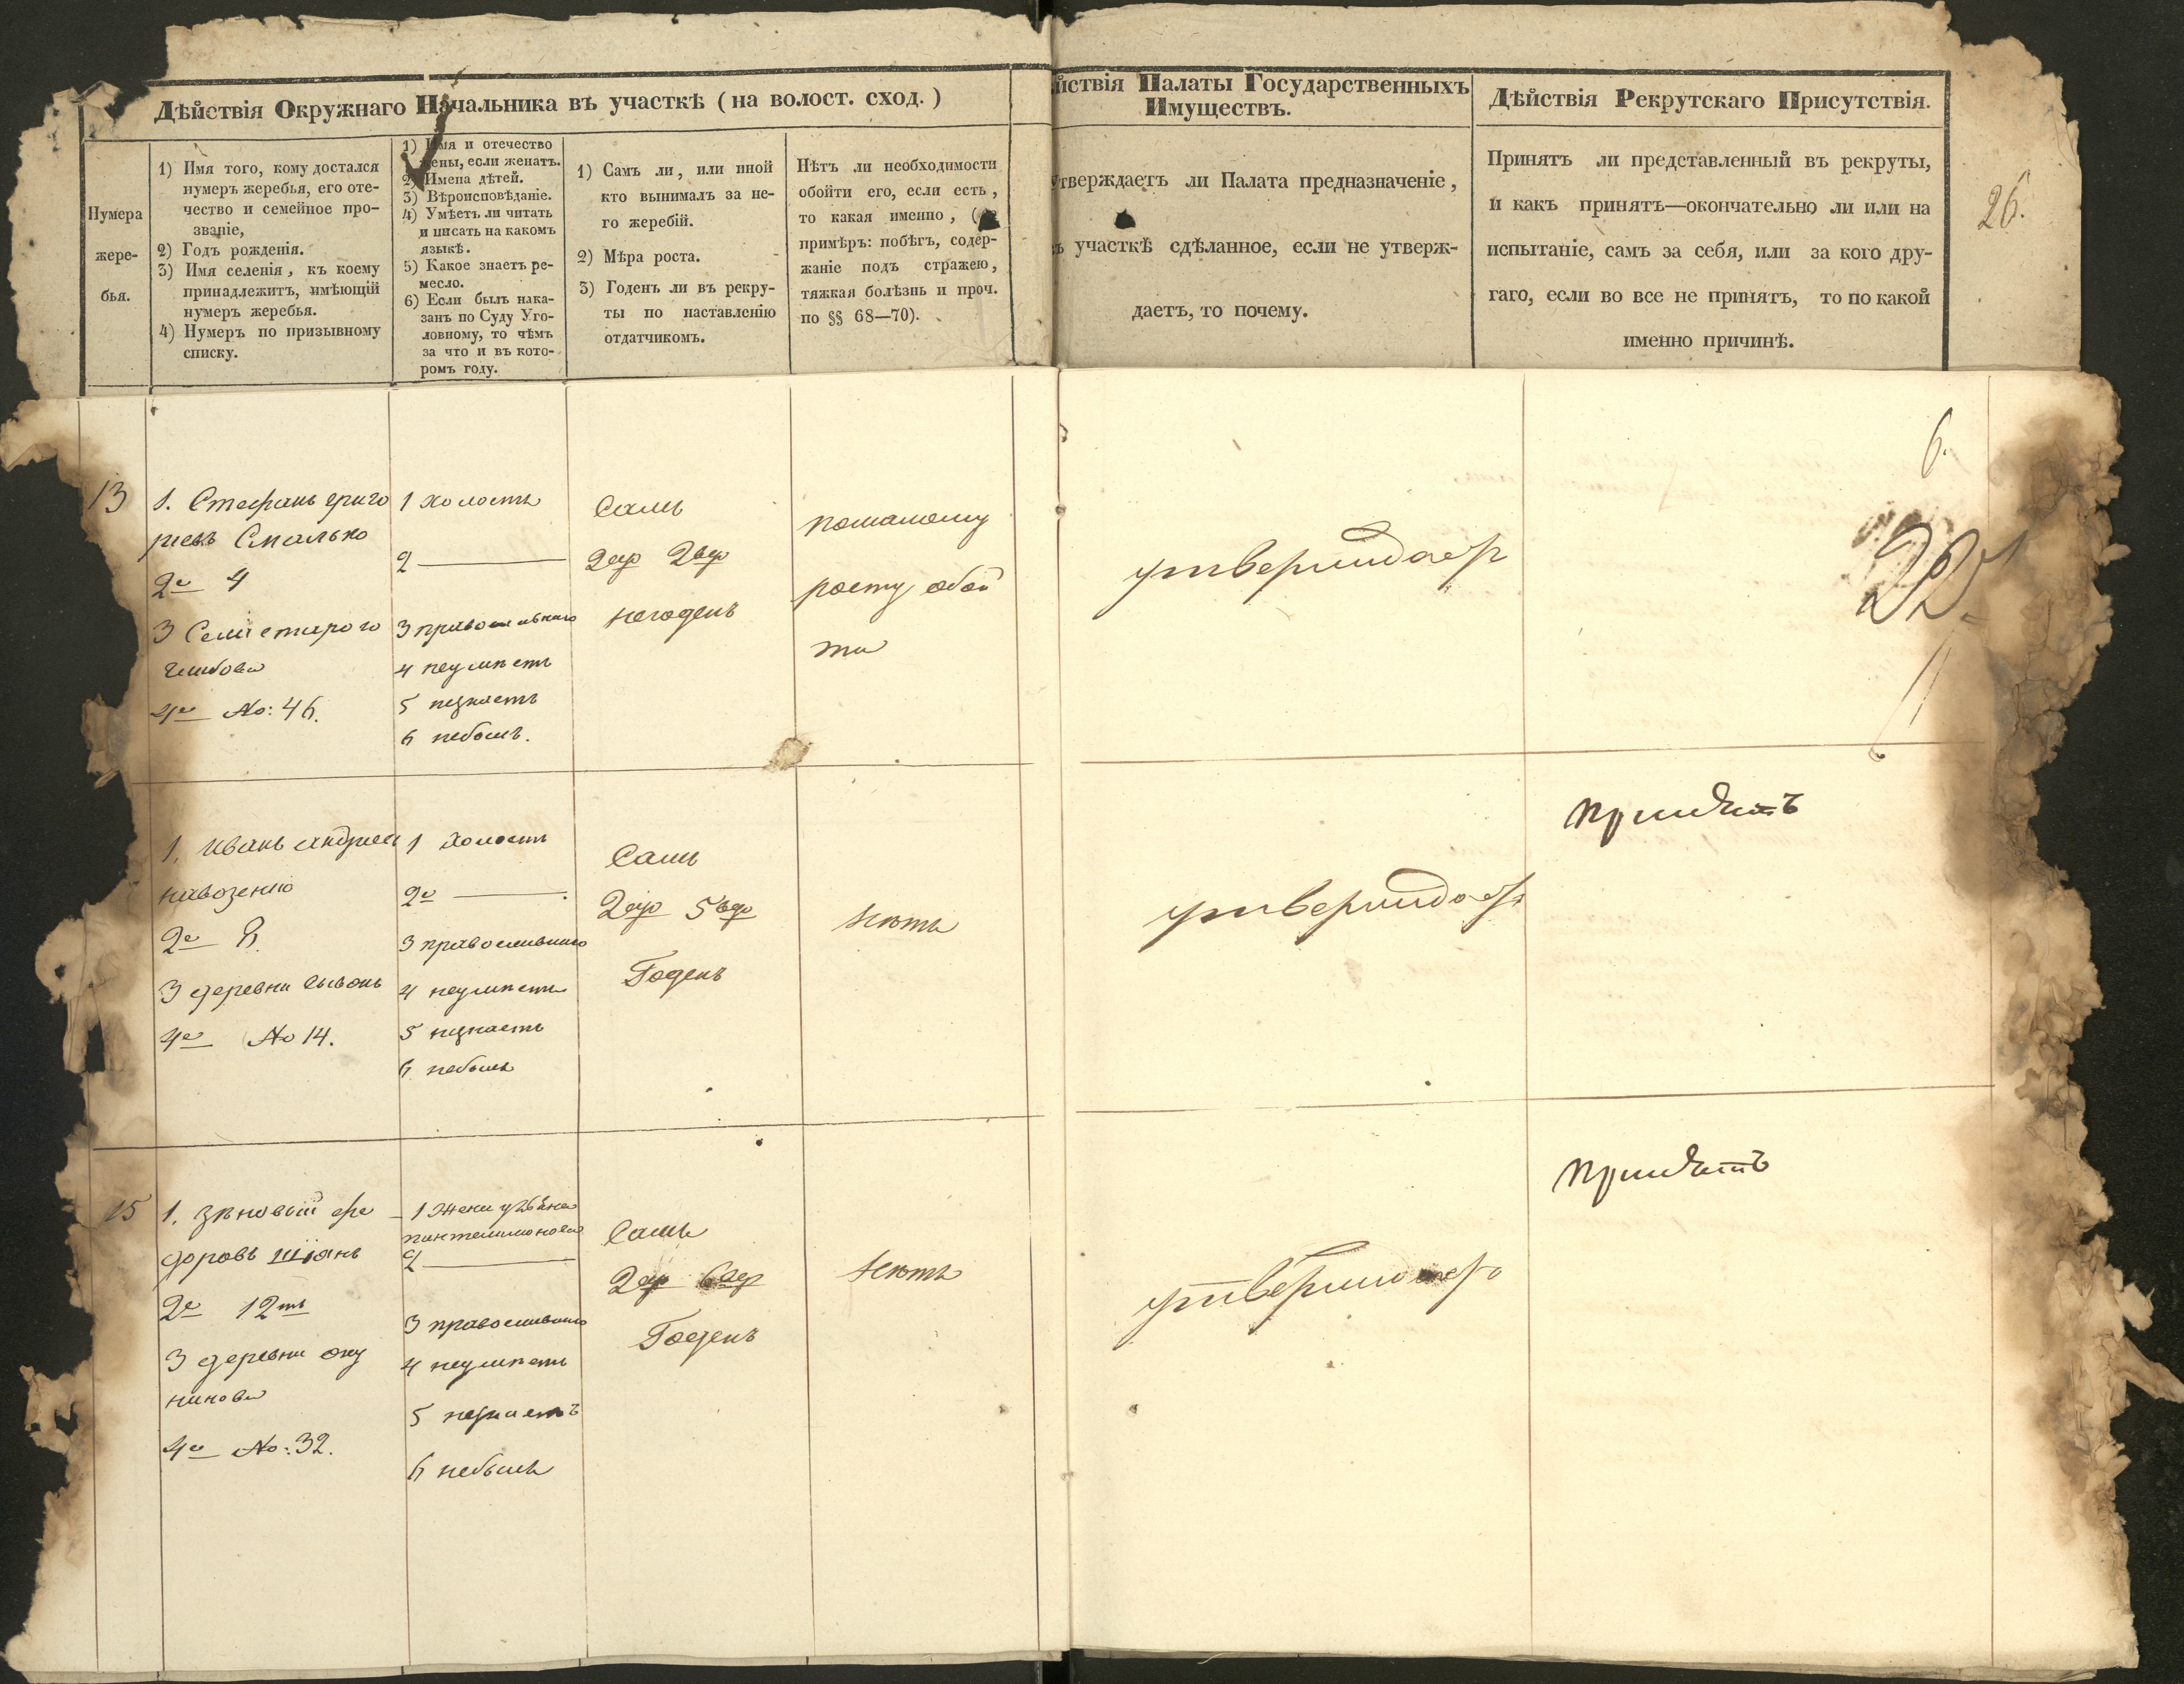 Дѣйствія Окружнаго Начальника въ участкѣ (на волост. сход.)
Нумера
жере-
бья.
1) Имя того, кому достался
нумеръ жеребья, его оте-
чество и семейное про-
званіе,
2) Годъ рожденія.
3) Имя селенія, къ коему
принадлежитъ, имѣющій
нумеръ жеребья.
4) Нумеръ по призывному
списку.
1) Имя и отечество
жены, если женатъ.
2) Имена дѣтей.
3) Вѣроисповѣданіе.
4) Умѣетъ ли читать
и писать на какомъ
языкѣ.
5) Какое знаетъ ре-
месло.
6) Если былъ нака-
занъ по Суду Уго-
ловному, то чѣмъ
за что и въ кото-
ромъ году.
1) Самъ ли, или иной
кто вынималъ за не-
го жеребій.
2) Мѣра роста.
3) Годенъ ли въ рекру-
ты по наставленію
отдатчикомъ.
Нѣтъ ли необходимости
обойти его, если есть,
то какая именно, (
примѣръ: побѣгъ, содер-
жаніе подъ стражею,
тяжкая болѣзнь и проч.
по §§ 68—70).
йствія Палаты Государственныхъ
Имуществъ.
утверждаетъ ли Палата предназначеніе,
ъ участкѣ сдѣланное, если не утверж-
даетъ, то почему.
Дѣйствія Рекрутскаго Присутствія.
Принятъ ли представленный въ рекруты,
и какъ принятъ—окончательно ли или на
испытаніе, самъ за себя, или за кого дру-
гаго, если во все не принятъ, то по какой
именно причинѣ.
26.
6.
13
1. Стефанъ григо
рьевъ Смалько
2е 4
3 Села старого
глибова
4е No: 46.
1 холостъ
2 —
3 православнаго
4 неумѣетъ
5 незнаетъ
6 небылъ.
Самъ
2ар 2вер
негоденъ
помалому
росту обой
ти
утверждаетъ
1. Иванъ андреев
навозенко
2е 8.
3 деревни
4е No 14.
1 Холостъ
2е —
3 православнаго
4 неумѣетъ
5 незнаетъ
6 небылъ
Самъ
2ар 5вер
Годенъ
Нѣтъ
утверждаетъ
Принятъ
15
1. Зѣновый фе
доровъ шіянъ
2е 12ть
3 деревни оку
нинова
4е No: 32.
1 Жена
пантелимонова
2 —
3 православнаго
4 неумѣетъ
5 незнаетъ
6 небылъ
Самъ
2ар 6вер
Годенъ
Нѣтъ
утверждаетъ
Принятъ